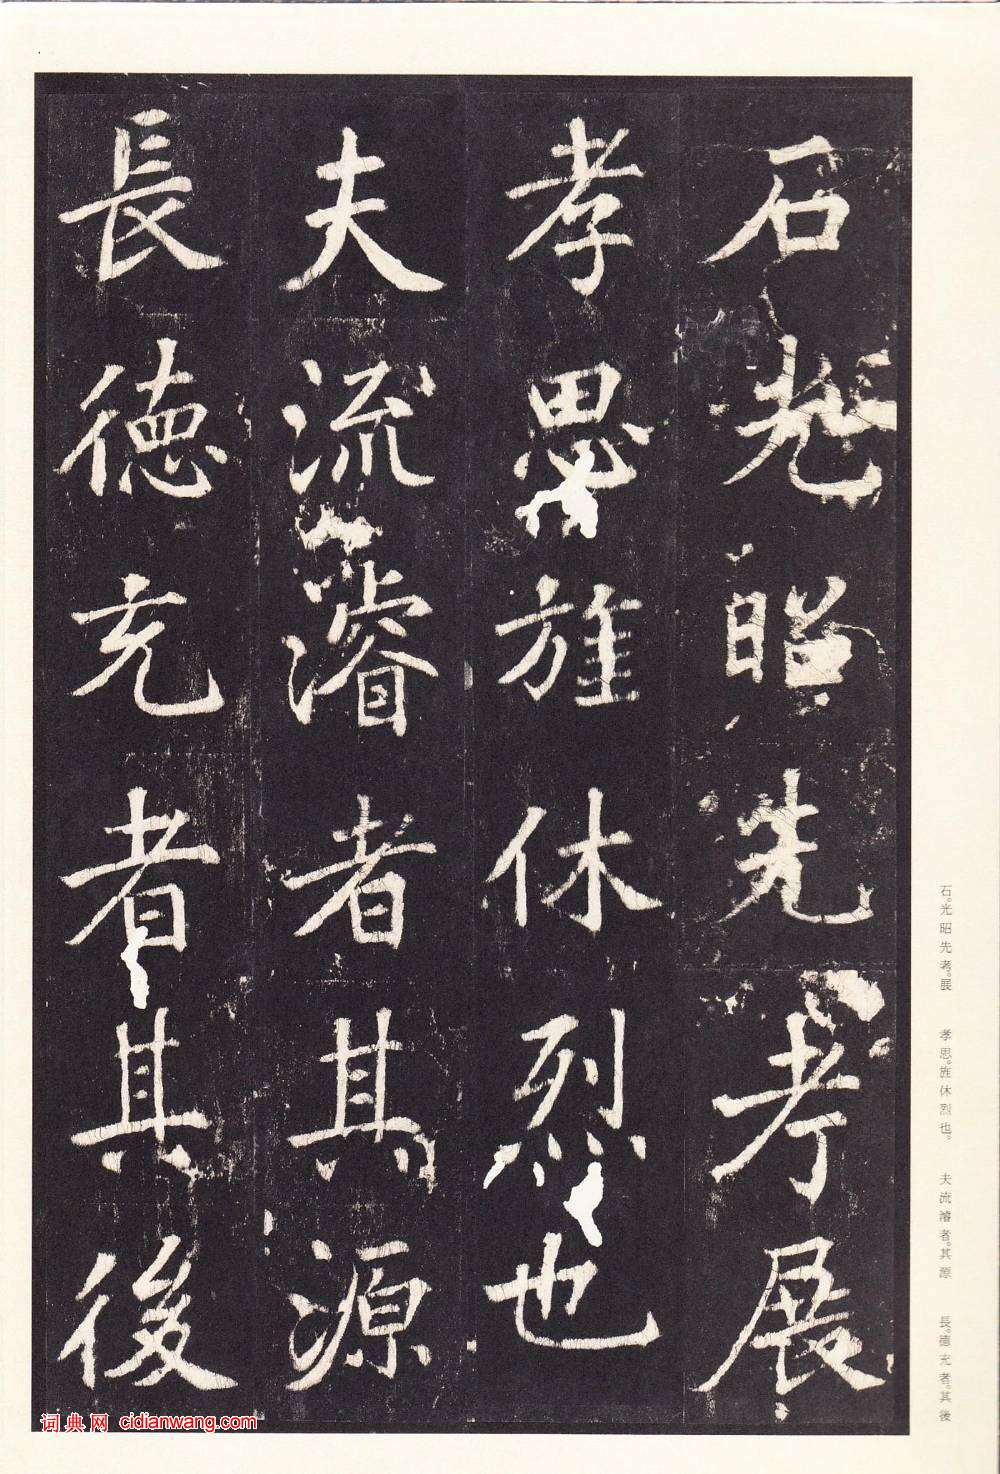 石光昭先考展
孝思旌休烈也
夫流濬者其源
長德充者其後
石。光昭先考。展 孝思。旌休烈也。 夫流濬者。其源 長。德充者。其後
词典网 cidianwang.com